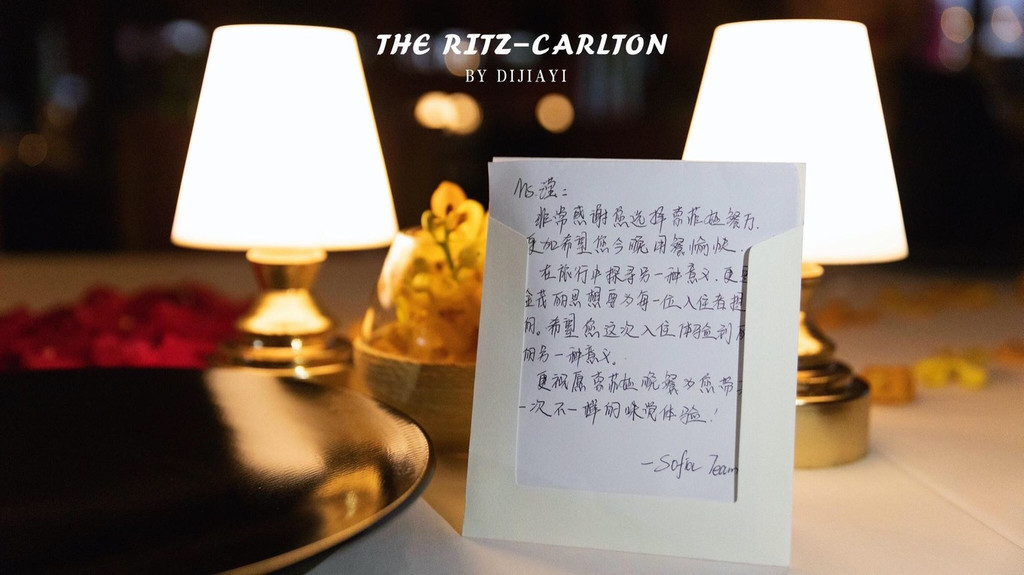 THE RITZ-CARLTON
BY DIJIAYI
Ms.瑾:
非常感谢您选择索菲极餐厅.
更加希望您今晚用餐愉快.
在旅行中探寻另一种意义.更
金茂丽思想要为每一位入住者提
的。希望您这次入住体验到
的另一种意义.
更祝愿索菲极晚餐为您带
一次不一样的味觉体验!
-Sofia Team